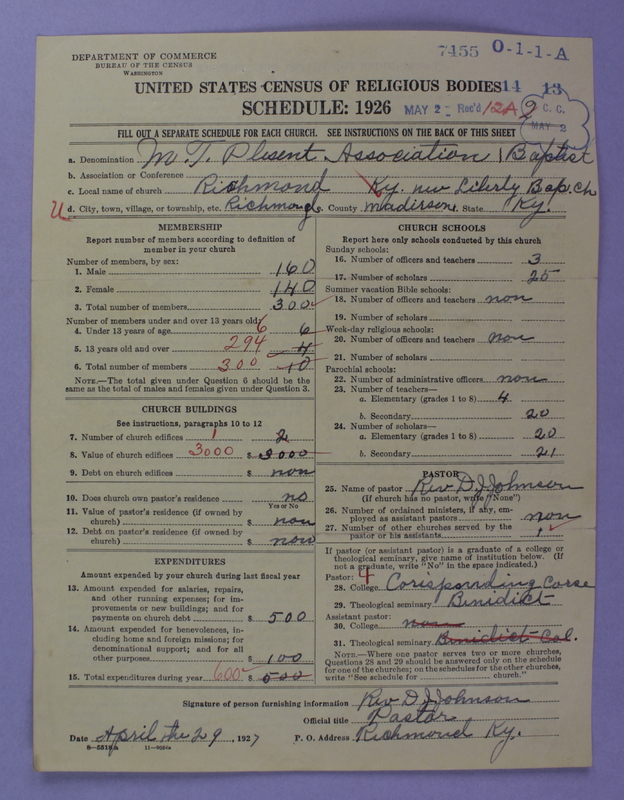 7455 0-1-1-A
DEPARTMENT OF COMMERCE
BUREAU OF THE CENSUS
WASHINGTON
UNITED STATES CENSUS OF RELIGIOUS BODIES 14 13
SCHEDULE: 1926 MAY 2 Rec'd 12A 2 C. C.
MAY 2
FILL OUT A SEPARATE SCHEDULE FOR EACH CHURCH. SEE INSTRUCTIONS ON THE BACK OF THIS SHEET
a. Denomination M T. Plesent Association | Baptist
b. Association or Conference
c. Local name of church Richmond Ky. new Liberty Bap. Ch
d. City, town, village, or township, etc. Richmond e. County Madirson f. State Ky.
MEMBERSHIP
Report number of members according to definition of
member in your church
Number of members, by sex:
1. Male 160
2. Female 140
3. Total number of members 300
Number of members under and over 13 years old:
4. Under 13 years of age 6 6
5. 13 years old and over 294 4
6. Total number of members 300 10
NOTE.—The total given under Question 6 should be the
same as the total of males and females given under Question 3.
CHURCH BUILDINGS
See instructions, paragraphs 10 to 12
7. Number of church edifices 1 2
8. Value of church edifices 3000 $ 3000
9. Debt on church edifices $ non
10. Does church own pastor's residence no
Yes or No
11. Value of pastor's residence (if owned by
church) $ non
12. Debt on pastor's residence (if owned by
church) $ non
EXPENDITURES
Amount expended by your church during last fiscal year
13. Amount expended for salaries, repairs,
and other running expenses; for im-
provements or new buildings; and for
payments on church debt $ 500
14. Amount expended for benevolences, in-
cluding home and foreign missions; for
denominational support; and for all
other purposes $ 100
15. Total expenditures during year 600 $ 500
CHURCH SCHOOLS
Report here only schools conducted by this church
Sunday schools:
16. Number of officers and teachers 3
17. Number of scholars 25
Summer vacation Bible schools:
18. Number of officers and teachers non
19. Number of scholars
Week-day religious schools:
20. Number of officers and teachers non
21. Number of scholars
Parochial schools:
22. Number of administrative officers non
23. Number of teachers—
a. Elementary (grades 1 to 8) 4
b. Secondary 20
24. Number of scholars—
a. Elementary (grades 1 to 8) 20
b. Secondary 21
PASTOR
25. Name of pastor Rev D. J. Johnson
(If church has no pastor, write "None")
26. Number of ordained ministers, if any, em-
ployed as assistant pastors non
27. Number of other churches served by the
pastor or his assistants 1
If pastor (or assistant pastor) is a graduate of a college or
theological seminary, give name of institution below. (If
not a graduate, write "No" in the space indicated.)
Pastor: 4
28. College Corisponding Corse
29. Theological seminary Binidict
Assistant pastor:
30. College non
31. Theological seminary Binidict Col.
NOTE.—Where one pastor serves two or more churches,
Questions 28 and 29 should be answered only on the schedule
for one of the churches; on the schedules for the other churches,
write "See schedule for church."
Signature of person furnishing information Rev D J Johnson
Official title Pastor
Date April the 29, 1927 P. O. Address Richmond Ky.
8-5518a 11-9024a